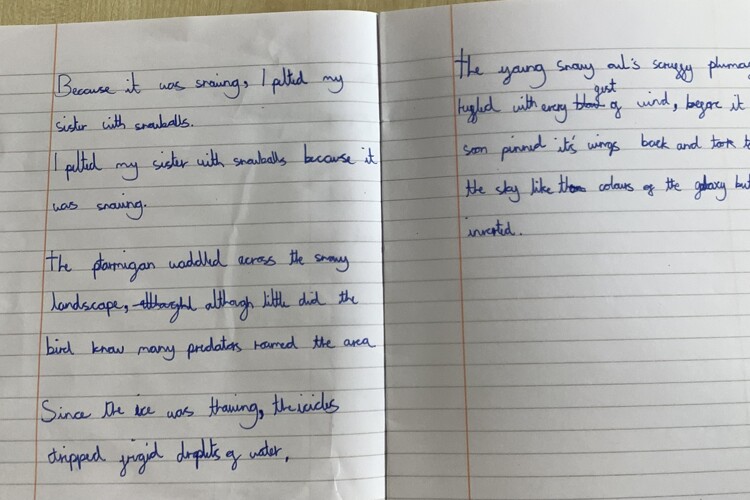 Because it was snowing, I pelted my
sister with snowballs.
I pelted my sister with snowballs because it
was snowing.
The ptarmigan waddled across the snowy
landscape, although little did the
bird know many predators roamed the area
Since the ice was thawing, the icicles
dripped frigid droplets of water.
The young snowy owl's scruffy
ruffled with every gust of wind, before it
soon pinned it's wings back and took
the sky like colours of the galaxy but
inverted.